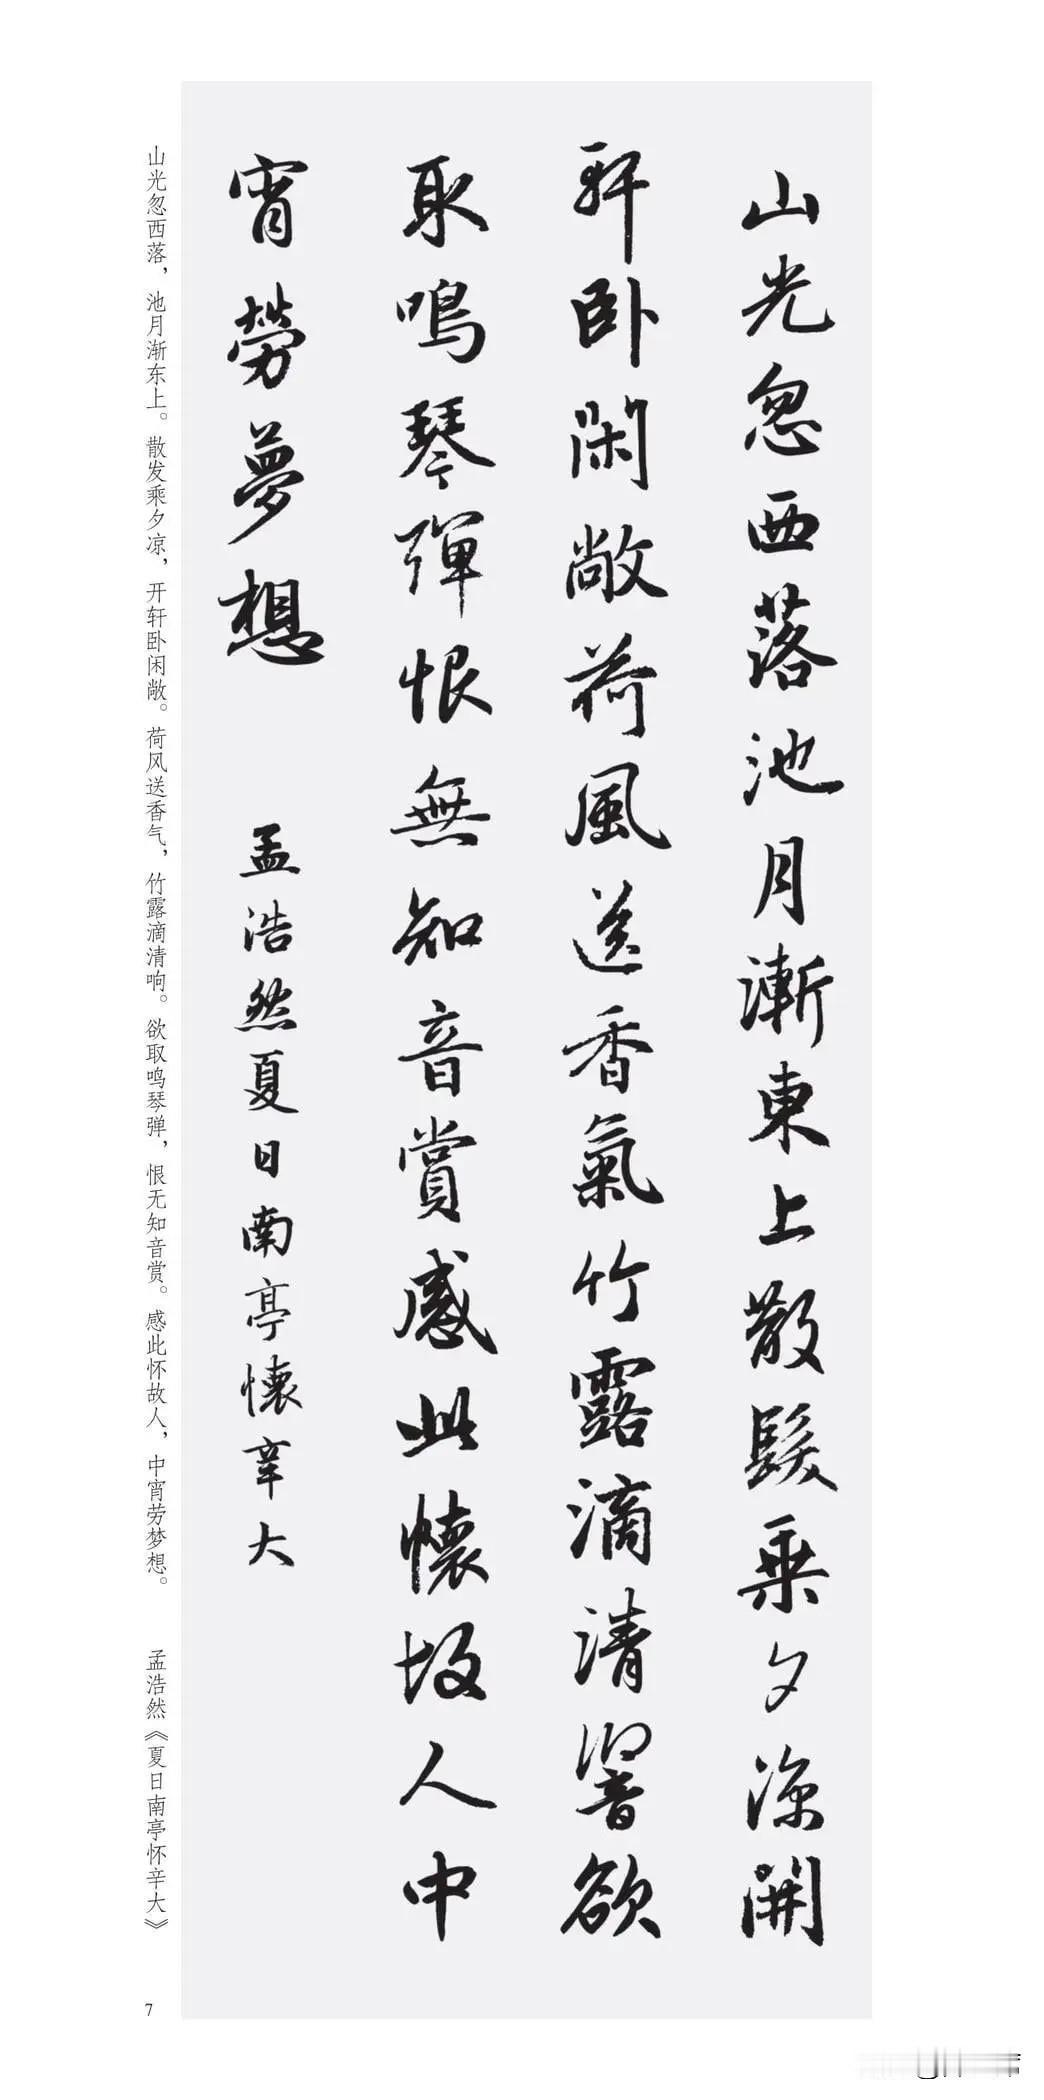 山光忽西落池月漸東上散髮乗夕涼開
軒卧閑敞荷風送香氣竹露滴清響欲
取鳴琴彈恨無知音賞感此懷故人中
宵勞夢想
孟浩然夏日南亭懷辛大
山光忽西落，池月渐东上。散发乘夕凉，开轩卧闲敞。荷风送香气，竹露滴清响。欲取鸣琴弹，恨无知音赏。感此怀故人，中宵劳梦想。 孟浩然《夏日南亭怀辛大》
7